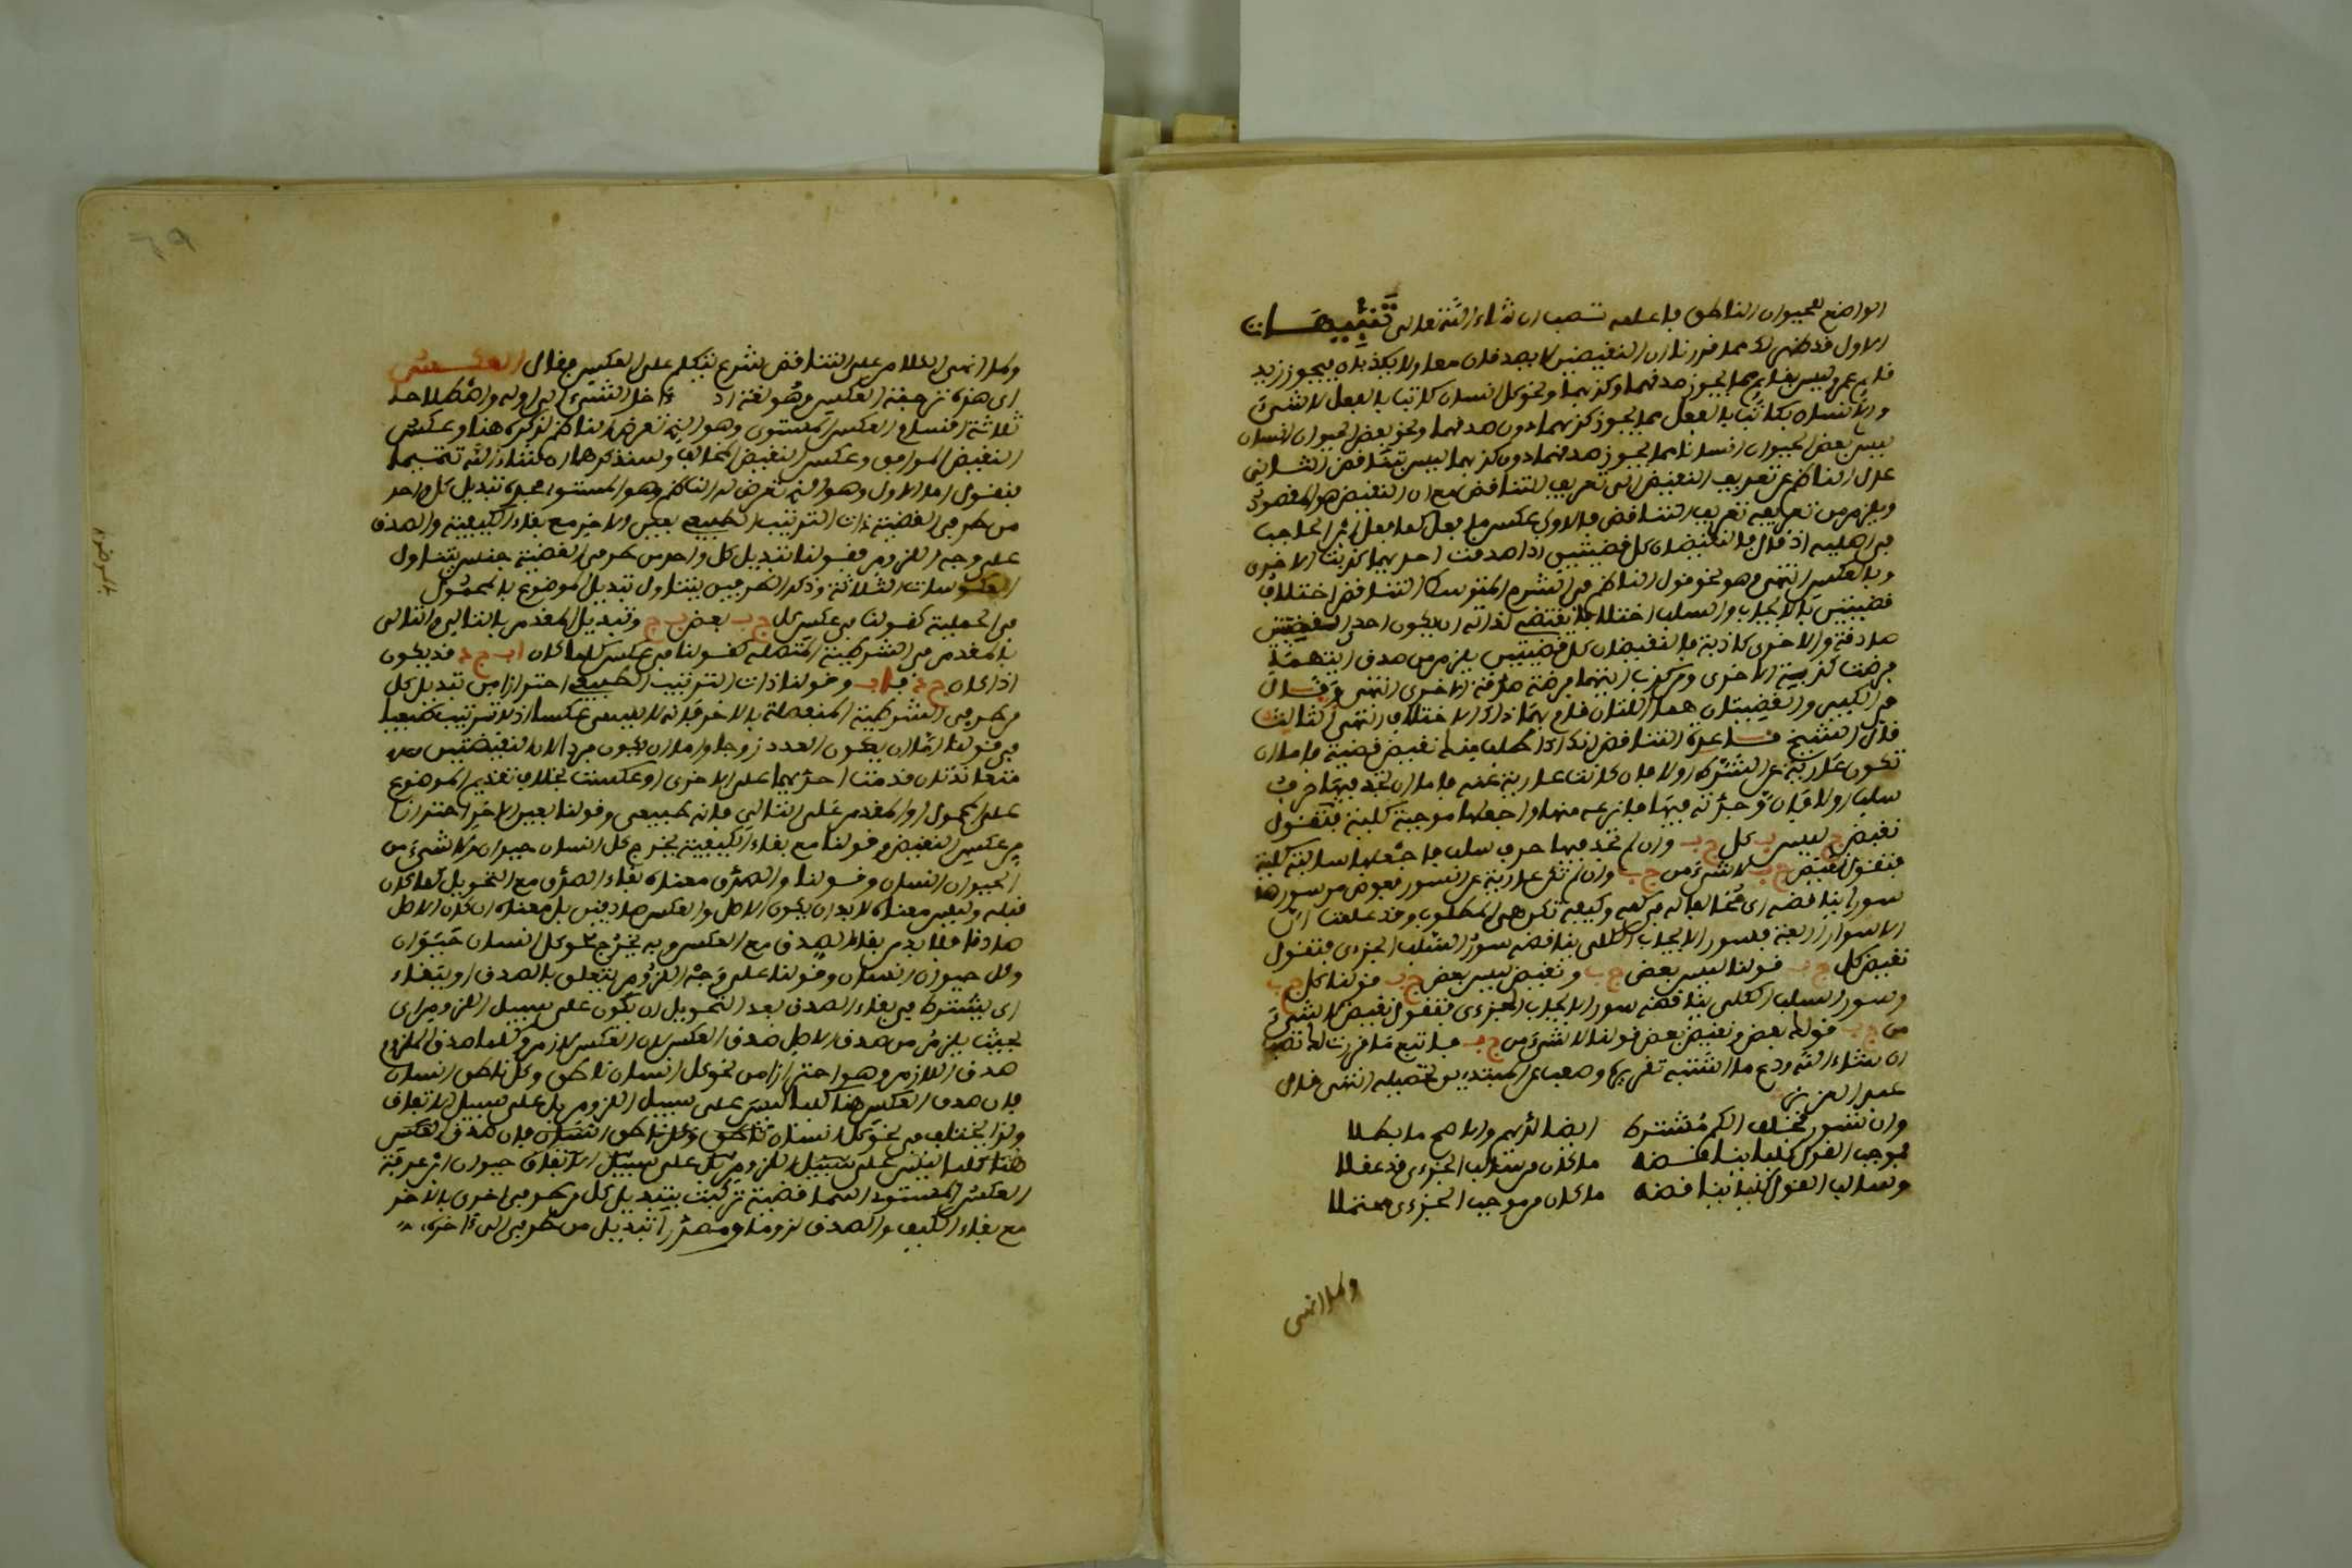 الواضع الحيوان الناطق فاعلمه تصب ان شاء الله تعالى تنبيهات
الاول قد ظهر لك مما قررنا ان النقيضين لا يصدقان معا ولا يكذبان فيجوز زيد
قايم عمرو ليس بقايم مما يجوز صدقهما وكذبهما ونحو كل انسان كاتب بالفعل لا شيء
من الانسان بكاتب بالفعل مما يجوز كذبهما دون صدقهما ونحو بعض الحيوان انسان
ليس بعض الحيوان انسانا مما يجوز صدقهما دون كذبهما ليس بتناقض الثاني
عدل الناظم عن تعريف النقيض الى تعريف التناقض مع ان النقيض هو المقصود
ويلزم من تعريفه تعريف التناقض فالاولى عكس ما فعل كما فعل ابن الحاجب
في اصليه اذ قال فالنقيضان كل قضيتين اذا صدقت احديهما كذبت الاخرى
وبالعكس انتهى وهو نحو قول الناظم في الشرح المتوسط التناقض اختلاف
قضيتين بالايجاب والسلب اختلافا يقتضي لذاته ان يكون احدى القضيتين
صادقة والاخرى كاذبة فالنقيضان كل قضيتين يلزم من صدق ايتهما
فرضت كذبية الاخرى ومن كذب ايتهما فرضت صادقة الاخرى انتهى وقال
في الكبير والنقيضتان هما اللتان قام بهما ذلك الاختلاف انتهى الثالث
قال الشيخ قاعدة التناقض انك اذا طلب منك نقيض قضية فاما ان
تكون عارية عن الشرك اولا فان كانت عارية عنه فاما ان تجد فيها حرف
سلب اولا فان وجدته فيها فانزعه منها واجعلها موجبة كلية فتقول
نقيض ج ليس ب كل ج ب وان لم تجد فيها حرف سلب فاجعلها سالبة كلية
فتقول نقيض ج ب لا شيء من ج ب وان لم تكن عارية عن السور فعوض من سورها
سورا يناقضه اى مخالفا له في كمه وكيفه تكن هي المطلوب وقد علمت ان
الاسوار اربعة فسور الايجاب الكلي يناقضه سور السلب الجزءى فتقول
نقيض كل ج ب قولنا ليس بعض ج ب ونقيض ليس بعض ج ب قولنا كل ج ب
وسور السلب الكلي يناقضه سور الايجاب الجزءى فتقول نقيض لا شيء
من ج ب قولك بعض ونقيض بعض قولنا لا شيء من ج ب فاتبع ما قررت لك تصب
ان شاء الله ودع ما اشتبه تقريره وصعب على المبتدى تحصيله انتهى قال
عبد العزيز
وان تسور تختلف الكم مشترط ايضا لديهم والاصح ما بطلا
فموجب القول كليا يناقضه ما كان من سالب الجزءى قد عقلا
وسالب القول كليا يناقضه ما كان من موجب الجزءى ممتثلا
ولما انهى
ولما انهى الكلام على التناقض شرع يتكلم على العكس فقال العكس
اى هذه ترجمة العكس وهو لغة رد اخر الشيء الى اوله واصطلاحا
ثلاثة اقسام العكس المستوى وهو الذي تعرض الناظم لذكره هنا وعكس
النقيض الموافق وعكس النقيض المخالف وسنذكرهما ان شاء الله تتميما
فنقول اما الاول وهو الذي تعرض له الناظم وهو المستوى فهو تبديل كل واحد
من طرفي القضية ذات الترتيب الطبيعي بعين الاخر مع بقاء الكيفية والصدق
على وجه اللزوم فقولنا تبديل كل واحد من طرفي القضية جنس يتناول
العكوسات الثلاثة وذكر الطرفين يتناول تبديل الموضوع بالمحمول
في الحملية كقولنا في عكس كل ج ب بعض ب ج وتبديل المقدم بالتالي والتالى
بالمقدم في الشرطية المتصلة كقولنا في عكس كلما كان اب ج د قد يكون
اذا كان ج د فاب وقولنا ذات الترتيب الطبيعي احترازا من تبديل كل
من طرفي الشرطية المنفصلة بالاخر فانه لا يسمى عكسا اذ لا ترتيب طبيعيا
في قولنا اما ان يكون العدد زوجا واما ان يكون فردا لان النقيضتين
متعاندتان قدمت احديهما على الاخرى او عكست بخلاف تقديم الموضوع
على المحمول او المقدم على التالي فانه طبيعى وقولنا بعين الاخر احترازا
من عكس النقيض وقولنا مع بقاء الكيفية يخرج كل انسان حيوان ولا شيء من
الحيوان انسان وقولنا والصدق معناه بقاء الصدق مع التحويل كما كان
قبله وليس معناه لا بد ان يكون الاصل والعكس صادقين بل معناه ان كان الاصل
صادقا فلا بد من بقاء الصدق مع العكس وبه يخرج نحو كل انسان حيوان
وكل حيوان انسان وقولنا على وجه اللزوم يتعلق بالصدق او ببقاء
اى يشترط في بقاء الصدق بعد التحويل ان يكون على سبيل اللزوم اى
بحيث يلزم من صدق الاصل صدق العكس لان العكس لازم وكلما صدق الملزوم
صدق اللازم وهو احترازا من نحو كل انسان ناطق وكل ناطق انسان
فان صدق العكس هنا كليا ليس على سبيل اللزوم بل على سبيل الاتفاق
ولذا يختلف في نحو كل انسان ناطق وكل ناطق انسان فان صدق العكس
هنا كليا ليس على سبيل اللزوم بل على سبيل الاتفاق حيوان ابن عرفة
العكس المستوى اسما قضية تركبت بتبديل كل من طرفي اخرى بالاخر
مع بقاء الكيف والصدق لزوما ومصدرا تبديل من طرفي الى اخره